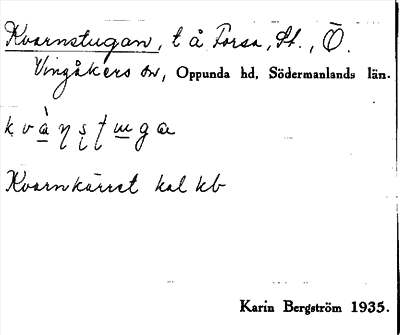 Kvarnstugan, t å Forsa, St., Ö.
Vingåkers sn, Oppunda hd, Södermanlands län.
Kvarnkärret kal kb
Karin Bergström 1935.